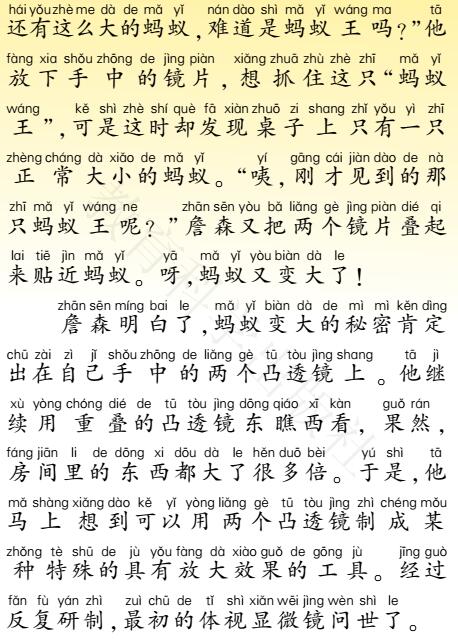 hái yǒu zhè me dà de mǎ yǐ nán dào shì mǎ yǐ wáng ma tā
还有这么大的蚂蚁,难道是蚂蚁王吗?”他
fàng xia shǒu zhōng de jìng piàn xiǎng zhuā zhù zhè zhī mǎ yǐ
放下手中的镜片,想抓住这只“蚂蚁
wáng kě shì zhè shí què fā xiàn zhuō zi shang zhǐ yǒu yì zhī
王”,可是这时却发现桌子上只有一只
zhèng cháng dà xiǎo de mǎ yǐ yí gāng cái jiàn dào de nà
正常大小的蚂蚁。“咦,刚才见到的那
zhī mǎ yǐ wáng ne zhān sēn yòu bǎ liǎng gè jìng piàn dié qi
只蚂蚁王呢?”詹森又把两个镜片叠起
lai tiē jìn mǎ yǐ yā mǎ yǐ yòu biàn dà le
来贴近蚂蚁。呀,蚂蚁又变大了!
zhān sēn míng bai le mǎ yǐ biàn dà de mì mì kěn dìng
詹森明白了,蚂蚁变大的秘密肯定
chū zài zì jǐ shǒu zhōng de liǎng gè tū tòu jìng shang tā jì
出在自己手中的两个凸透镜上。他继
xù yòng chóng dié de tū tòu jìng dōng qiáo xī kàn guǒ rán
续用重叠的凸透镜东瞧西看,果然,
fáng jiān li de dōng xi dōu dà le hěn duō bèi yú shì tā
房间里的东西都大了很多倍。于是,他
mǎ shàng xiǎng dào kě yǐ yòng liǎng gè tū tòu jìng zhì chéng mǒu
马上想到可以用两个凸透镜制成某
zhǒng tè shū de jù yǒu fàng dà xiào guǒ de gōng jù jīng guò
种特殊的具有放大效果的工具。经过
fǎn fù yán zhì zuì chū de tǐ shì xiǎn wēi jìng wèn shì le
反复研制,最初的体视显微镜问世了。